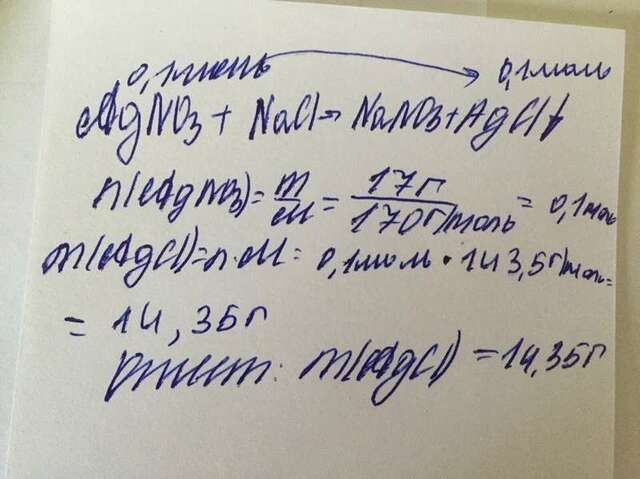 0,1 моль 0,1 моль
AgNO3 + NaCl = NaNO3 + AgCl↓
n(AgNO3) = m/M = 17г/170г/моль = 0,1 моль
m(AgCl) = n·M = 0,1 моль · 143,5г/моль =
= 14,35г
Ответ: m(AgCl) = 14,35г